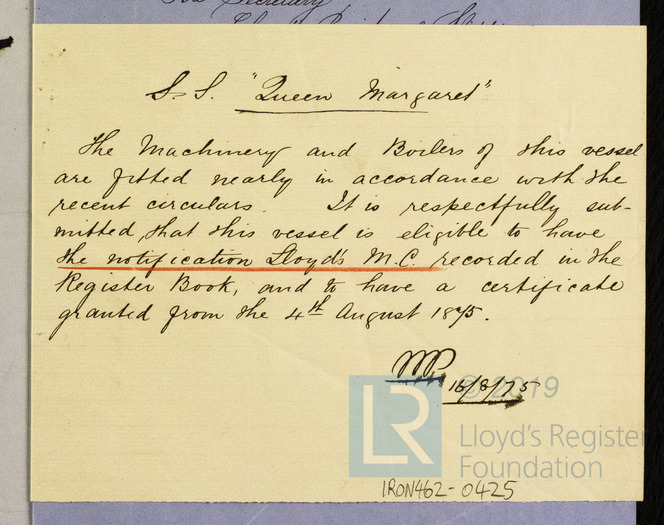 Secretary
S. S. "Queen Margaret"
The Machinery and Boilers of this vessel
are fitted nearly in accordance with the
recent circulars. It is respectfully sub-
mitted, that this vessel is eligible to have
the notification Lloyd's M.C. recorded in the
Register Book, and to have a certificate
granted from the 4th August 1875.
16/8/75
© 2019
LR
Lloyd's Register
Foundation
IRON462-0425